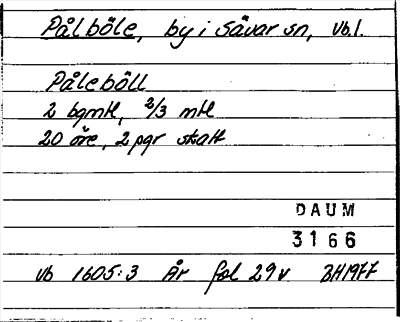 Pålböle, by i Sävar sn, Vb.l.
Påleböll
2 bgmtl, 2/3 mtl
20 öre, 2 pgr skatt
DAUM
3166
Vb 1605:3 Är fol 29v BH1977